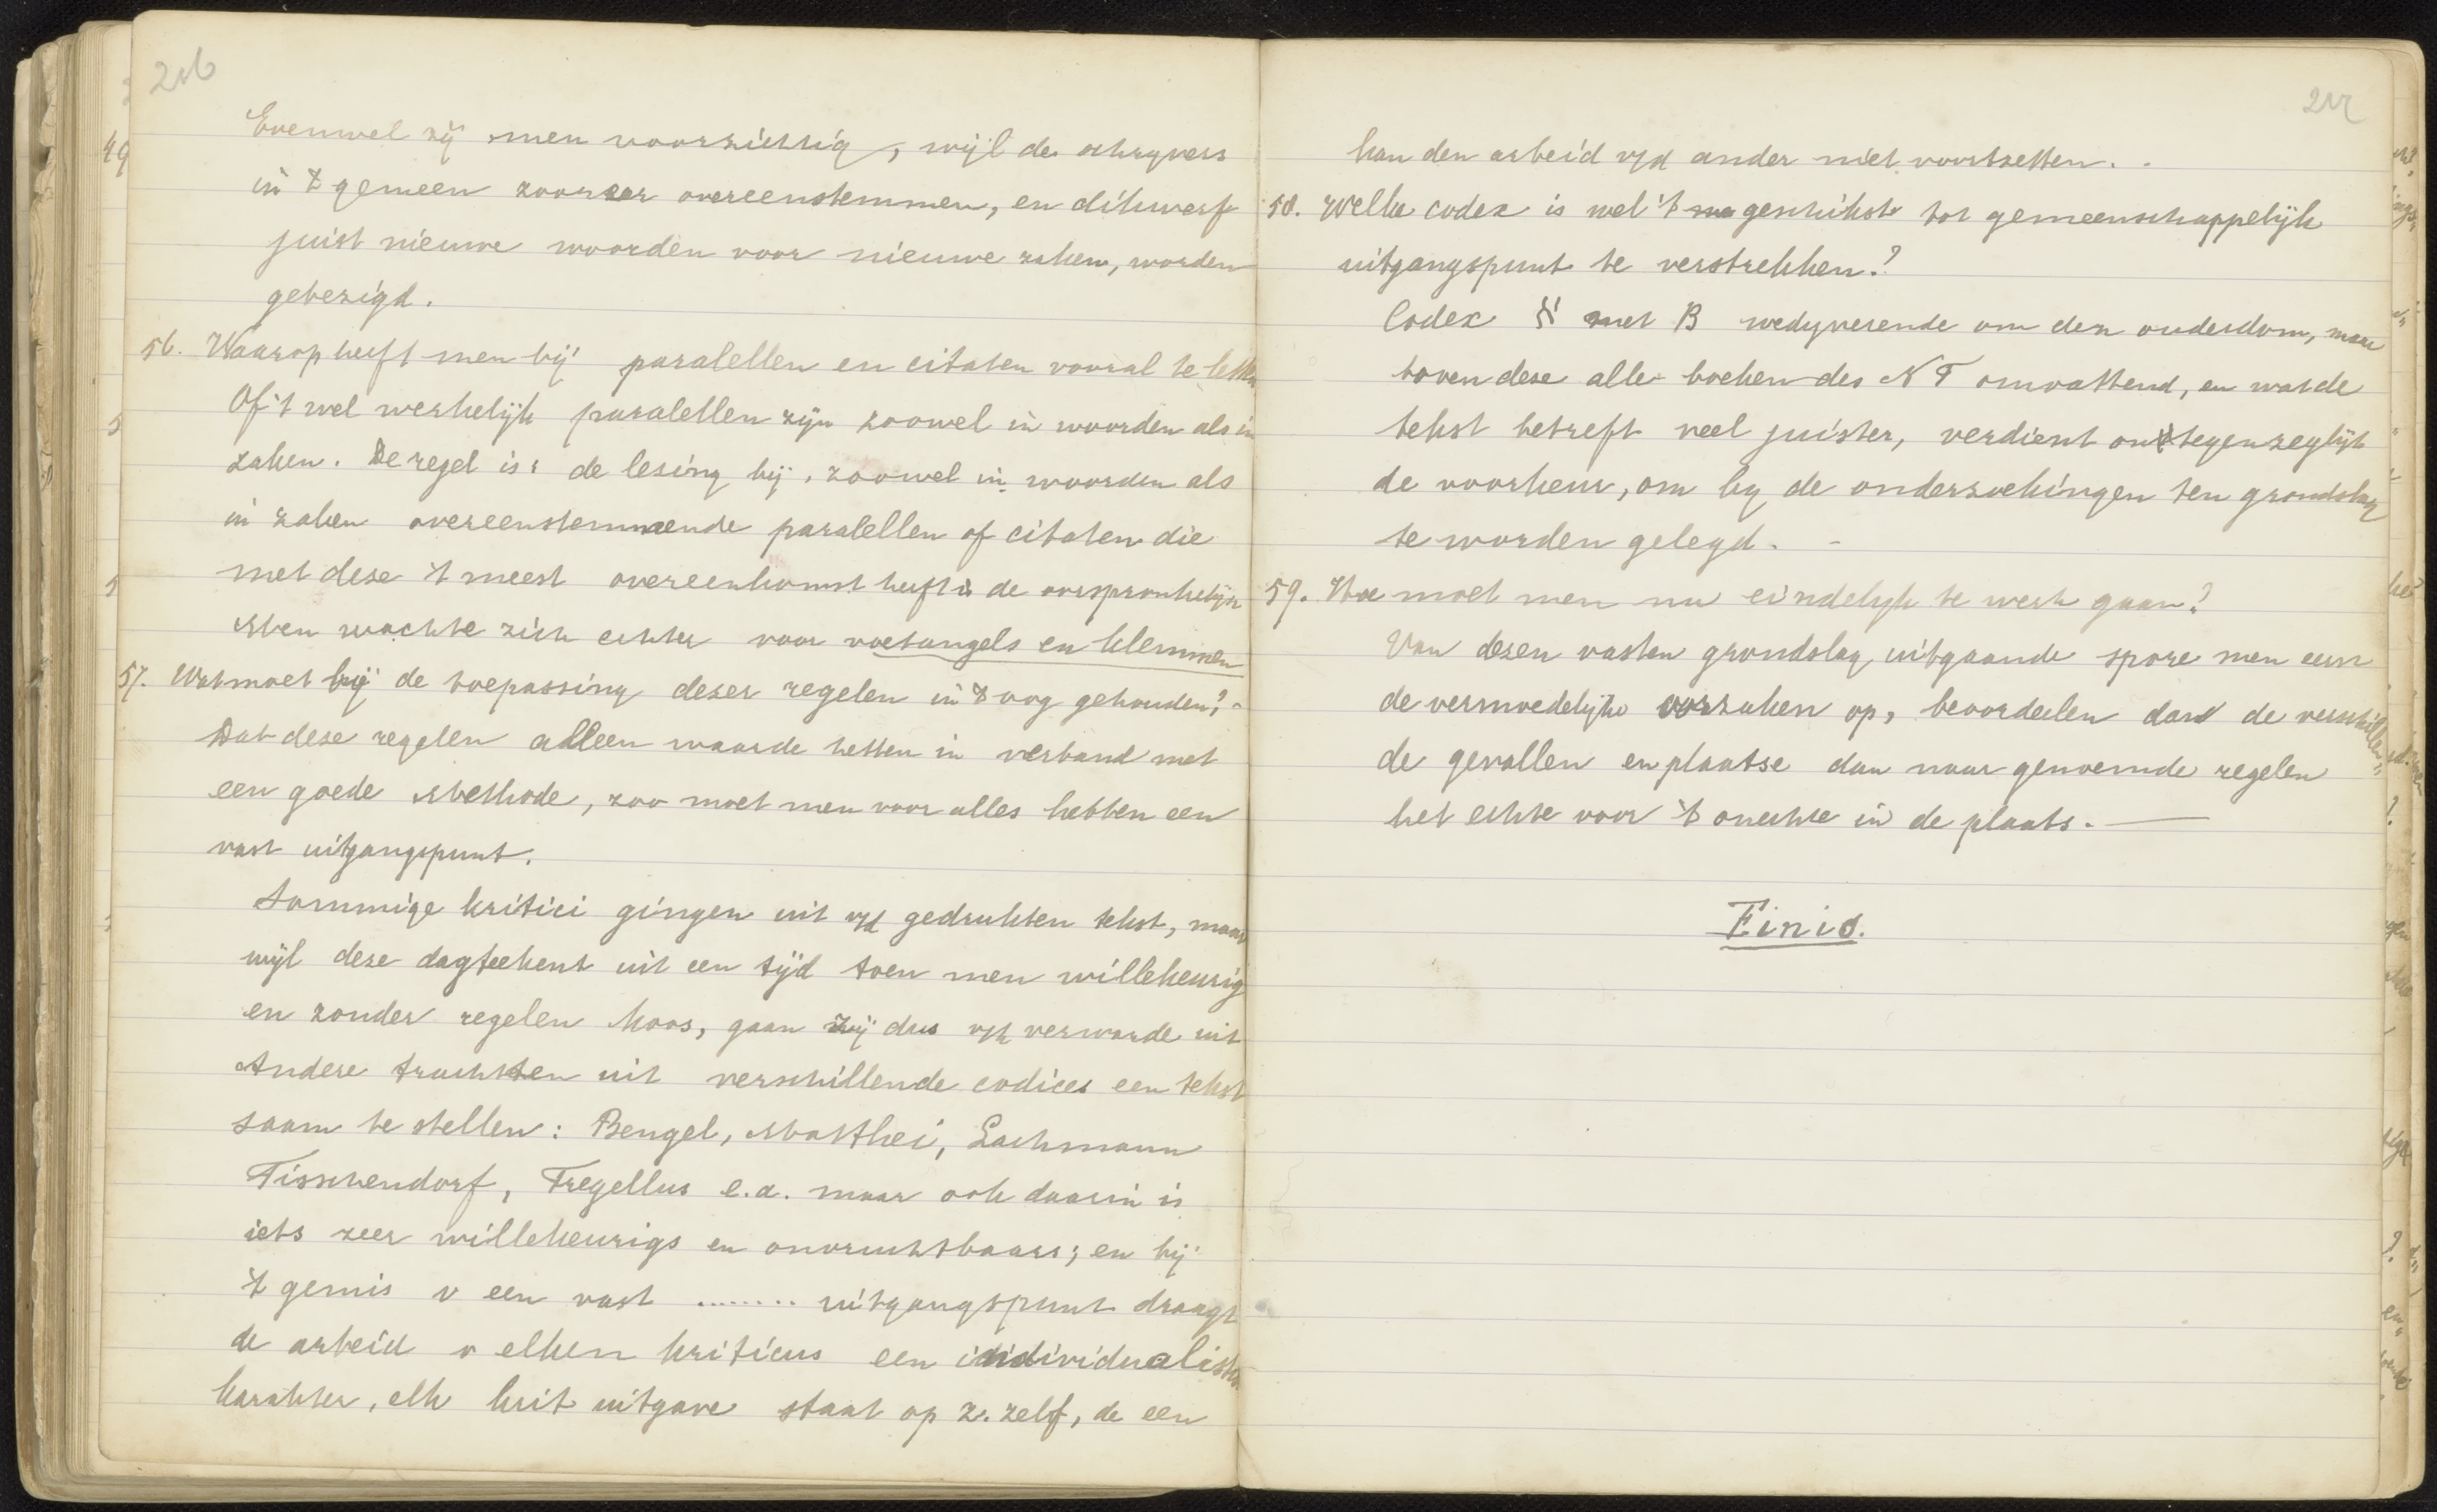 216
Evenwel zij men voorzichtig, wijl de schryvers
in 't gemeen zoozeer overeenstemmen, en dikwerf
juist nieuwe woorden voor nieuwe zaken, worden
gebezigd.
56. Waarop heeft men bij paralellen en citaten vooral te letten
Of 't wel werkelijk paralellen zijn zoowel in woorden als in
zaken. De regel is: de lezing bij, zoowel in woorden als
in zaken overeenstemmende paralellen of citaten die
met deze 't meest overeenkomst heeft is de oorspronkelijke
Men wachte zich echter voor voetangels en klemmen
57. Wat moet bij de toepassing dezer regelen in 't oog gehouden?-
Dat deze regelen alleen waarde hebben in verband met
een goede Methode, zoo moet men voor alles hebben een
vast uitgangspunt.
Sommige kritici gingen uit v/d gedrukten tekst, maar
wijl deze dagteekent uit een tijd toen men willekeurig
en zonder regelen koos, gaan zij dus v/h verwarde uit
Andere trachtten uit verschillende codices een tekst
saam te stellen: Bengel, Matthei, Lachmann
Tisschendorf, Tregellus e.a. maar ook daarin is
iets zeer willekeurigs en onvruchtbaars; en bij
't gemis v een vast ........ uitgangspunt draagt
de arbeid v elken kriticus een individualistisch
karakter, elk krit uitgave staat op z. zelf, de een
217
kan den arbeid v/d ander niet voortzetten. -
58. Welke codex is wel 't geschikst tot gemeenschappelijk
uitgangspunt te verstrekken?
Codex א met B wedyverende om den ouderdom, maar
boven deze alle boeken des N T omvattend, en wat de
tekst betreft veel juister, verdient ontegenzeglijk
de voorkeur, om by de onderzoekingen ten grondslag
te worden gelegd. -
59. Hoe moet men nu eindelyk te werk gaan?
Van dezen vasten grondslag uitgaande spore men eerst
de vermoedelijke oorzaken op, beoordeelen dan de verschillen"
de gevallen en plaatse dan naar genoemde regelen
het echte voor 't onechte in de plaats. —
Finis.